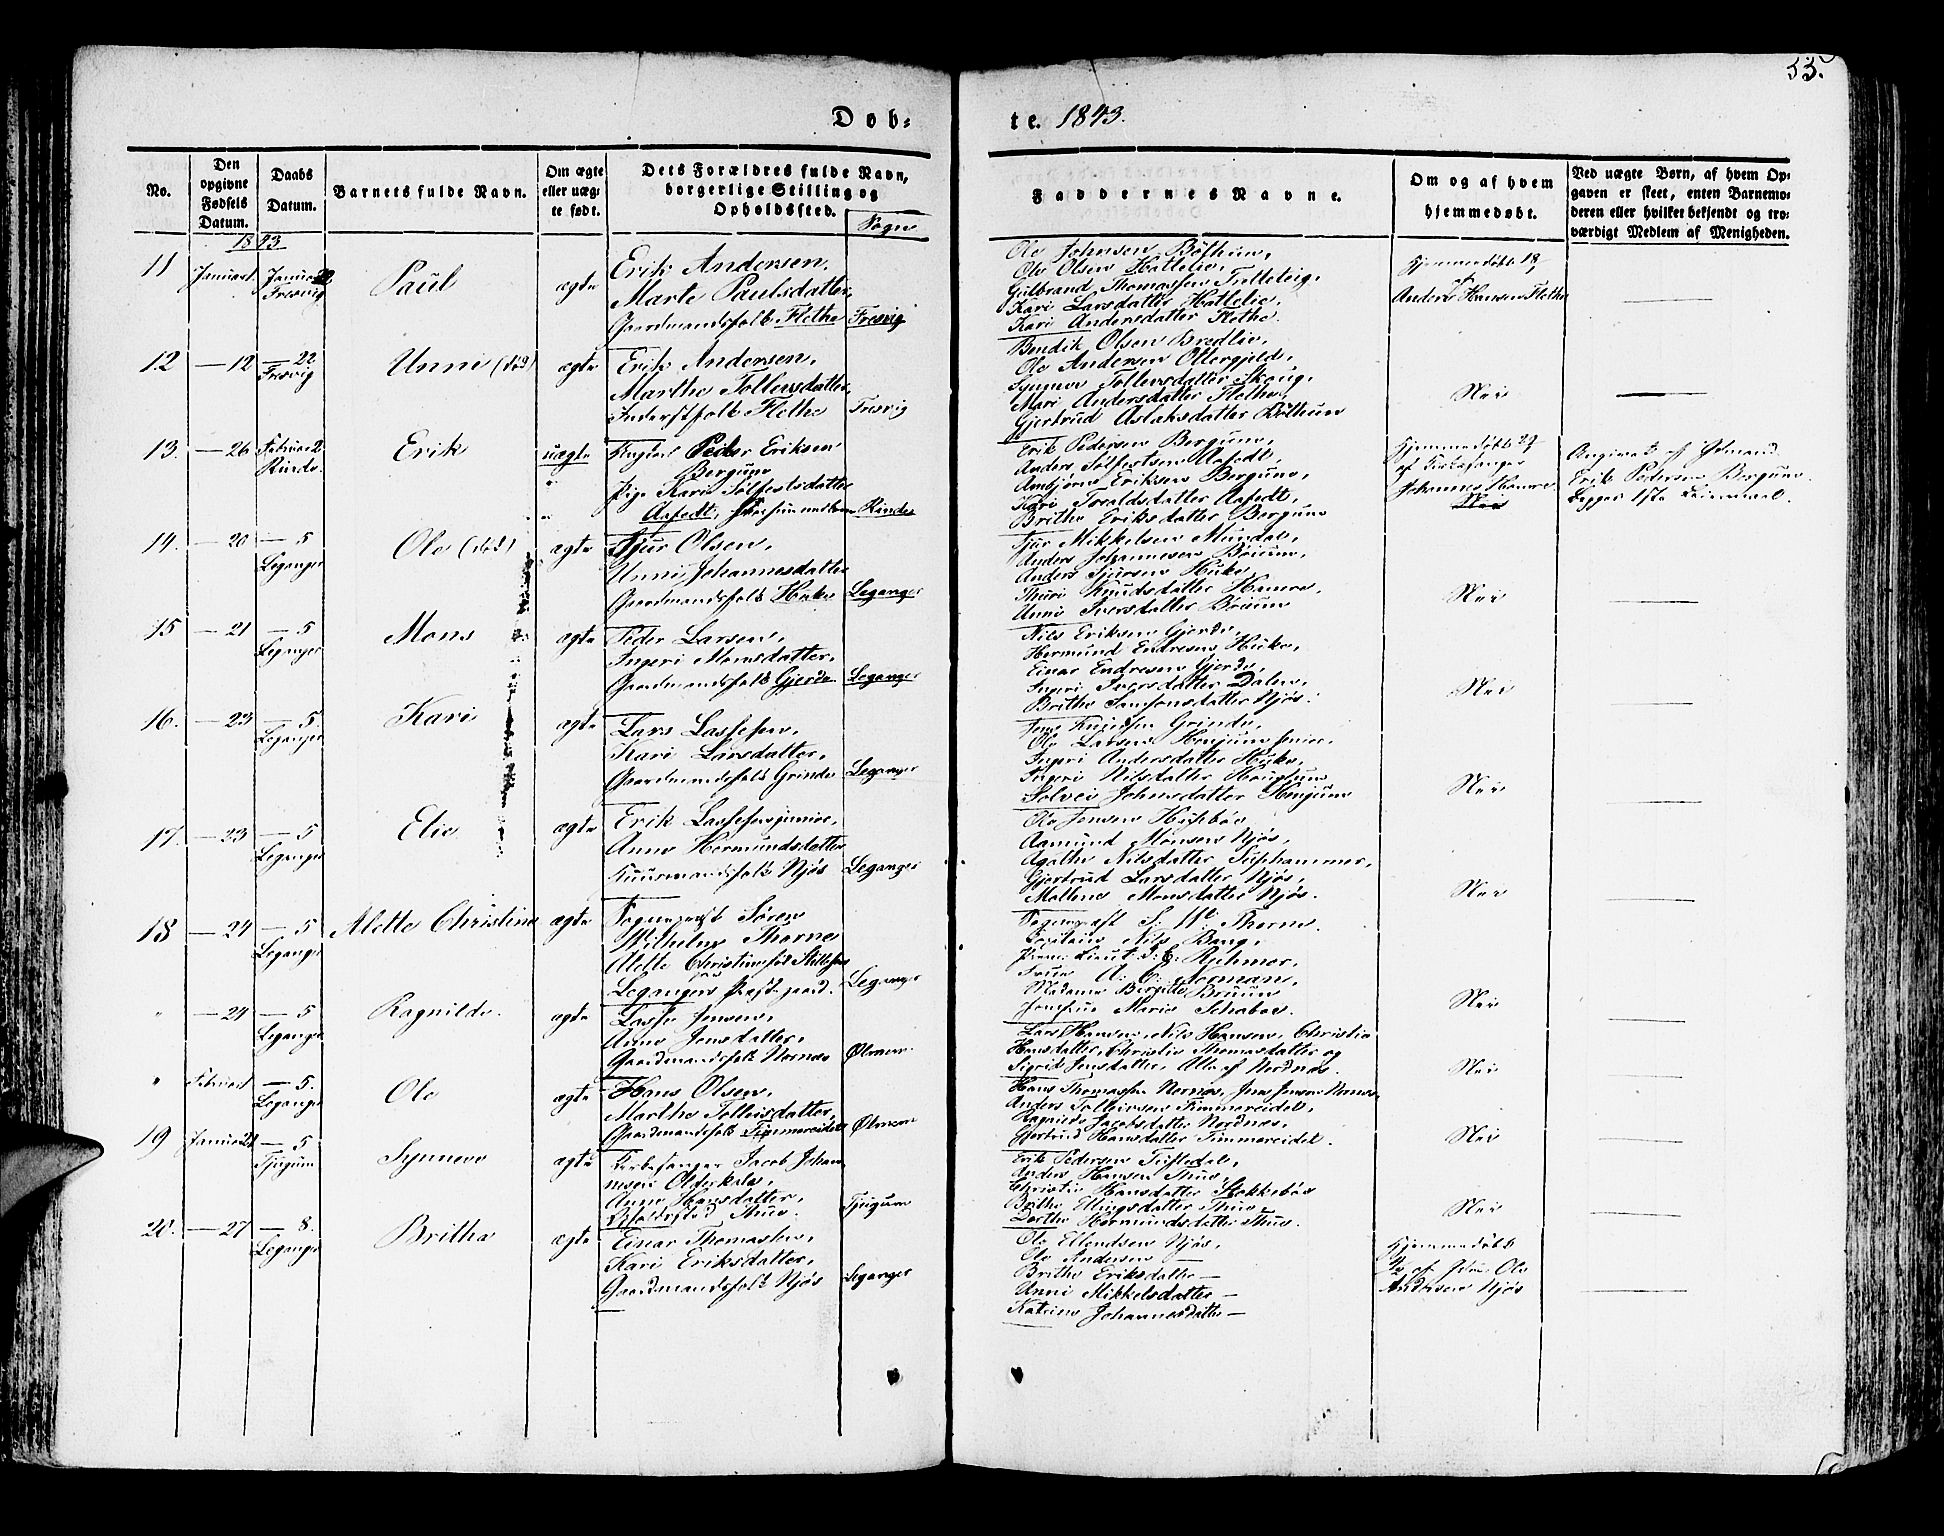 55.
Døb-
te. 1843.
No.
Den opgivne Fødsels Datum.
Daabs Datum.
Barnets fulde Navn.
Om ægte eller uægte født.
Dets Forældres fulde Navn, borgerlige Stilling og Opholdssted.
Sogn
Faddernes Navne.
Om og af hvem hjemmedøbt.
Ved uægte Børn, af hvem Opgaven er skeet, enten Barnemoderen eller hvilket bekjendt og troværdigt Medlem af Menigheden.
1843
11
Januar
Januar 22
Fresvig
Paul
ægte
Erik Andersen,
Marte Paulsdatter,
Gaardmandsfolk Flethe
Fresvig
Ole Johnsen Bøthun,
Ole Olsen Hatlelie,
Gulbrand Thomassen Tuftevig,
Kari Larsdatter Hatlelie,
Kari Andersdatter Flethe.
Hjemmedøbt 18/
Anders Hansen Flethe
12
— 12
— 22
Fresvig
Unni (død)
ægte
Erik Andersen,
Marthe Tollevsdatter,
Inderstfolk Flethe
Fresvig
Bendik Olsen Bredlie,
Ole Andersen Ottergjeld,
Synneve Tollevsdatter Skoug,
Mari Andersdatter Flethe,
Gjertrud Aslaksdatter Bøthun
Nei
13.
— 26
Februar 2
Rinde
Erik
uægte
Ungkarl Peder Eriksen
Bergum
Pige Kari Sølfestsdatter
Aafedt,
Rinde
Erik Pedersen Bergum,
Anders Sølfestsen Aafedt,
Ambjørn Eriksen Bergum,
Kari Troaldsdatter Aafedt,
Brithe Eriksdatter Bergum
Hjemmedøbt 27
af Kirkesanger
Johannes Hamre
Nei
Angivet af Jomand
Erik Pedersen Bergum.
Begges 1ste Leiermaal.
14.
— 20
— 5
Leganger
Ole (død)
ægte
Sjur Olsen,
Unni Johannesdatter
Gaardmandsfolk Huke
Leganger
Sjur Mikkelsen Mundal,
Anders Johannesen Bøium,
Anders Sjursen Huke,
Thuri Knudsdatter Hamre,
Unni Iversdatter Bøium
Nei
15
— 21
— 5
Leganger
Mons
ægte
Peder Larsen,
Ingeri Monsdatter,
Gaardmandsfolk Gjerde
Leganger
Nils Eriksen Gjerde,
Hermund Endresen Huke,
Einar Endresen Gjerde,
Ingeri Iversdatter Dalen,
Brithe Samsonsdatter Njøs.
Nei
16.
— 23
— 5.
Leganger
Kari
ægte
Lars Lassesen,
Kari Larsdatter,
Gaardmandsfolk Grinde
Leganger
Jens Knudsen Grinde,
Ole Larsen Henjum senior,
Ingeri Andersdatter Huke,
Ingeri Nilsdatter Henjum
Solvei Johnsdatter Henjum
Nei
17.
— 23
— 5
Leganger
Elie
ægte
Erik Lassesen junior,
Anne Hermundsdatter
Huusmandsfolk Njøs
Leganger
Ole Jensen Husebøe
Aamund Monsen Njøs,
Agathe Nilsdatter
Gjertrud Larsdatter Njøs,
Mallene Monsdatter Njøs.
Nei
18
— 24
— 5
Leganger
Alette Christine
ægte
Sogneprest Søren
Wilhelm Thorne
Alette Christine fød Stillesen
Legangers Præstegaard.
Leganger
Sogneprest S. W. Thorne.
Capitain Nils Bang,
Prem: Lieut: J: C: Richmor,
Frue A: C: Normann,
Madame Bergitte Bruun
Jomfrue Marie Schaboe.
Nei
"
— 24
— 5
Leganger
Ragnilde
ægte
Lasse Jensen,
Anne Jensdatter,
Gaardmandsfolk Nornæs
Ølmem
Lars Hansen, Nils Hansen, Christie
Hansdatter, Christie Thomasdatter og
Sigrid Jensdatter, Alle af Nordnæs.
Nei
"
Februar
— 5.
Leganger
Ole
ægte
Hans Olsen,
Marthe Tolleivsdatter,
Gaardmandsfolk Timmereidet
Ølmem
Hans Thomassen Nornæs, Jens Jensen Nornæs,
Anders Tolleivsen Timmereidet,
Ragnilde Jacobsdatter Nordnæs,
Gjertrud Hansdatter Timmereidet.
Nei
19
Januar 21
— 5
Tjugum
Synneve
ægte
Kirkesanger Jacob Johan-
nesen
Anne Hansdatter,
Opholdssted Thue.
Tjugum
Erik Pedersen Tuftedal,
Anders Hansen Thue,
Christie Hansdatter Stokkebøe
Brithe Ellingsdatter Thue
Dorthe Hermundsdatter Thue.
Nei
20.
— 27
— 8.
Leganger
Britha
ægte
Einar Thomassen,
Kari Eriksdatter,
Gaardmandsfolk Njøs
Leganger
Ole Ellendsen Njøs,
Ole Andersen —
Brithe Eriksdatter —
Unni Mikkelsdatter —
Katrine Johannesdatter —
Hjemmedøbt
af Ole
Andersen Njøs